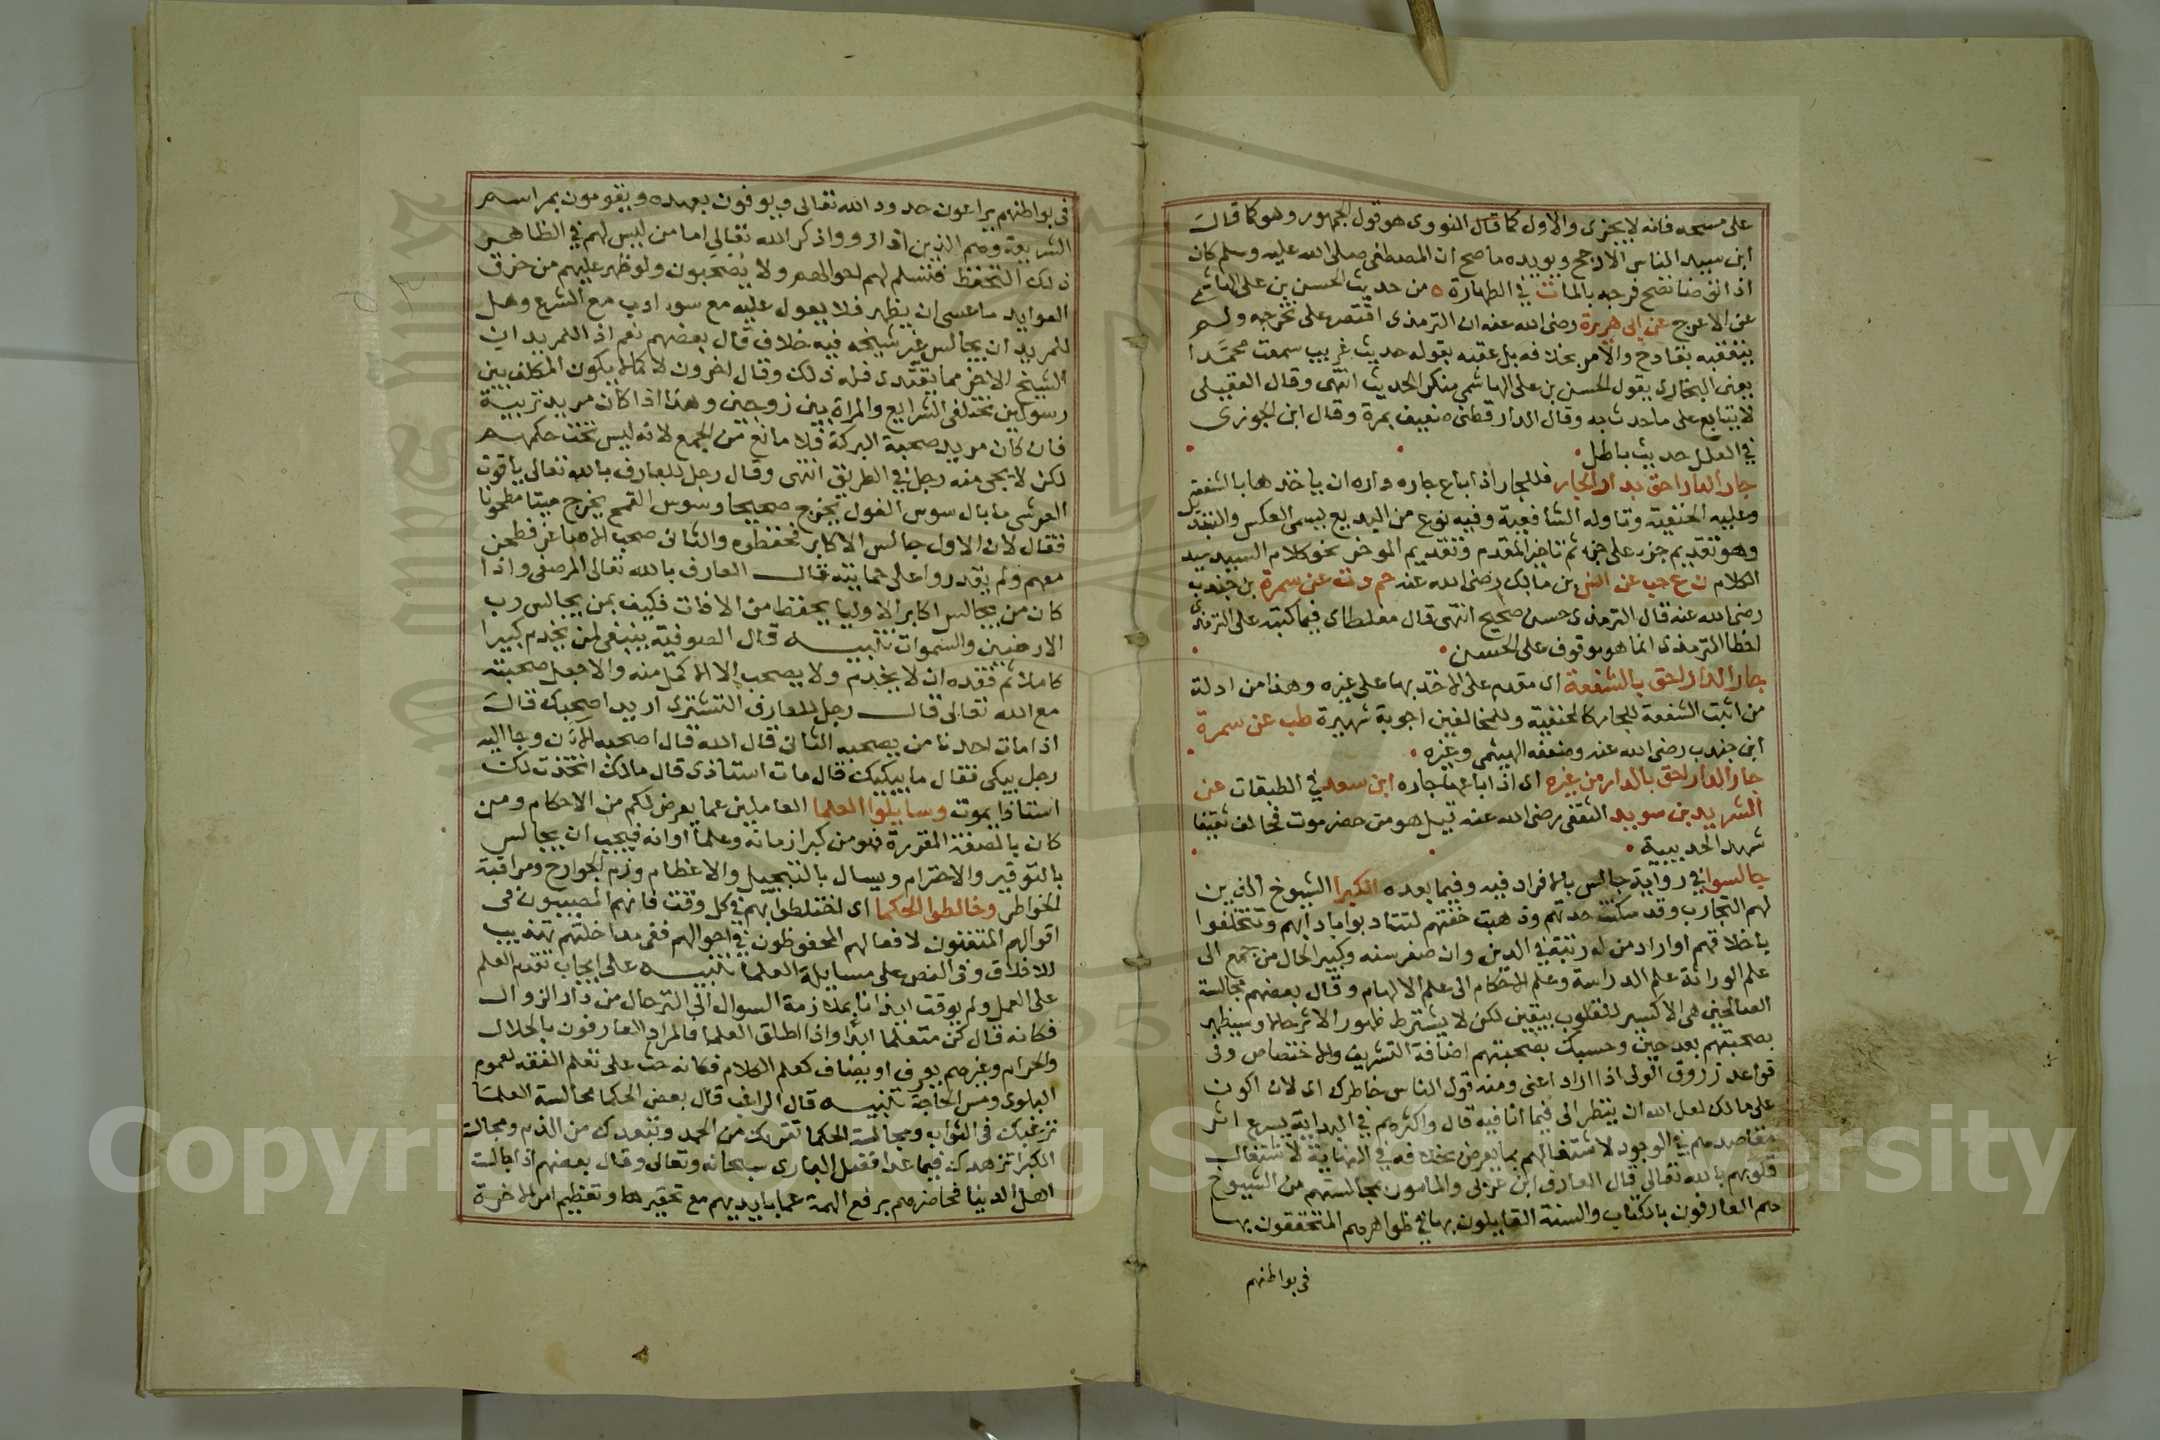 على مسحه فانه لا يجزى والاول كما قال النووى هو قول الجمهور وهو كما قالـ
ابن سيد الناس الارجح ويويده ما صح ان المصطفى صلى الله عليه وسلم كان
اذا توضا نضح فرجه بالما ت في الطهارة ه من حديث الحسن بن على الهاشمى
عن الاعرج عن ابى هريرة رضى الله عنه ان الترمذى اقتصر على تخرجه ولم
يتعقبه بقادح والامر بخلافه بل عقبه بقوله حديث غريب سمعت محمدا
يعنى البخارى يقول الحسن بن على الهاشمى منكر الحديث انتهى وقال العقيلى
لا يتابع على ما حدث به وقال الدارقطنى ضعيف بمرة وقال ابن الجوزى
في العلل حديث باطل
جار الدار احق بدار الجار فللجار اذا باع جاره داره ان ياخذها بالشفعة
وعليه الحنفية وتاوله الشافعية وفيه نوع من البديع يسمى العكس والتبديل
وهو تقديم جزء على جزء ثم تاخير المقدم وتقديم الموخر نحو كلام السيد سيد
الكلام ن ع حب عن انس بن مالك رضى الله عنه حم د ت عن سمرة بن جندب
رضى الله عنه قال الترمذى حسن صحيح انتهى قال مغلطاى فيما كتبه على الترمذى
اخطا الترمذى انما هو موقوف على الحسن
جار الدار احق بالشفعة اى مقدم على الاخذ بها على غيره وهذا من ادلة
من اثبت الشفعة للجار كالحنفية وللمخالفين اجوبة شهيرة طب عن سمرة
ابن جندب رضى الله عنه وضعفه الهيثمى وغيره
جار الدار احق بالدار من غيره اى اذا باعها جاره ابن سعد في الطبقات عن
الشريد بن سويد الثقفى رضى الله عنه قيل هو من حضرموت فحالف ثقيفا
شهد الحديبية
جالسوا في رواية جالس بالافراد فيه وفيما بعده الكبرا الشيوخ الذين
لهم التجارب وقد سكنت حدتهم وذهبت خفتهم لتتادبوا بادابهم وتتخلقوا
باخلاقهم او اراد من له رتبة في الدين وان صغر سنه وكبير الحال من جمع الى
علم الوراثة علم الدراسة وعلم الاحكام الى علم الالهام وقال بعضهم مجالسة
الصالحين هى الاكسير للقلوب بيقين لكن لا يشترط ظهور الاثر حالا وسيظهر
بصحبتهم بعد حين وحسبك بصحبتهم اضافة التشريف والاختصاص وفى
قواعد زروق الولى اذا اراد اغنى ومنه قول الناس خاطرك اى لان اكون
على مالك لعل الله ان ينظر الى فيما انا فيه قال واكثرهم في البداية يسرع اثر
مقاصدهم في الوجود لاشتغالهم بما يعرض بخلافه في النهاية لاشتغال
قلوبهم بالله تعالى قال العارف ابن عربى والمامون بمجالستهم من الشيوخ
هم العارفون بالكتاب والسنة القايلون بها في ظواهرهم المتحققون بها
فى بواطنهم
فى بواطنهم يراعون حدود الله تعالى ويوفون بعهده ويقومون بمراسم
الشريعة وهم الذين اذا رووا ذكر الله تعالى اما من ليس لهم في الظاهر
ذلك التحفظ فنسلم لهم احوالهم ولا يُصْحَبون ولو ظهر عليهم من خرق
العوايد ما عسى ان يظهر فلا يعول عليه مع سوء ادب مع الشرع وهل
للمريد ان يجالس غير شيخه فيه خلاف قال بعضهم نعم اذا للمريد ان
الشيخ الاخر مما يقتدى فله ذلك وقال اخرون لا كما لا يكون المكلف بين
رسولين مختلفى الشرايع والمراة بين زوجين وهذا اذا كان مريد تربية
فان كان مريد صحبة البركة فلا مانع من الجمع لانه ليس تحت حكمهم
لكن لا يجى منه رجل في الطريق انتهى وقال رجل للعارف بالله تعالى ياقوت
العرشى ما بال سوس الفول يخرج صحيحا وسوس القمح يخرج ميتا مطحونا
فقال لان الاول جالس الاكابر فحفظوه والثانى صحب الاصاغر فطحن
معهم ولم يقدروا على حمايته قالـ العارف بالله تعالى المرصفى واذا
كان من يجالس اكابر الاوليا يحفظ من الافات فكيف بمن يجالس رب
الارضين والسموات تنبيـه قال الصوفية ينبغى لمن يخدم كبيرا
كاملا ثم فقده ان لا يخدم ولا يصحب الا الاكمل منه والا جعل صحبته
مع الله تعالى قالـ رجل للعارف التسترى اريد اصحبك قالـ
اذا مات احدنا من يصحبه الثانى قال الله قال اصحبه الان وجا اليه
رجل يبكى فقال ما يبكيك قال مات استاذى قال مالك اتخذت لك
استاذا يموت وسايلوا العلما العاملين عما يعرض لكم من الاحكام ومن
كان بالصفة المقررة فهو من كبرا زمانه وعلما اوانه فيجب ان يجالس
بالتوقير والاحترام ويسال بالتبجيل والاعظام وزم الجوارح ومراقبة
الخواطر وخالطوا الحكما اى اختلطوا بهم في كل وقت فانهم المصيبون فى
اقوالهم المتقنون لافعالهم المحفوظون في احوالهم ففى مداخلتهم تهذيب
للاخلاق وفى النص على مسايلة العلما تنبيـه على ايجاب تقدم العلم
على العمل ولم يوقت ايذانا بملازمة السوال الى الترحال من دار الزوال
فكانه قال كن متعلما ابدا واذا اطلق العلما فالمراد العارفون بالحلال
والحرام وغيرهم يعرف او يضاف كعلم الكلام فكانه حث على تعلم الفقه لعموم
البلوى ومس الحاجة تنبيـه قال الراغب قال بعض الحكما مجالسة العلما
ترغبك فى الثواب ومجالسة الحكما تقربك من الحمد وتبعدك من الذم ومجالسة
الكبرا تزهدك فيما عدا فضل البارى سبحانه وتعالى وقال بعضهم اذا جالست
اهل الدنيا فحاضرهم برفع الهمة عما بايديهم مع تحقيرها وتعظيم امر الاخرة
Copyright © King Saud University